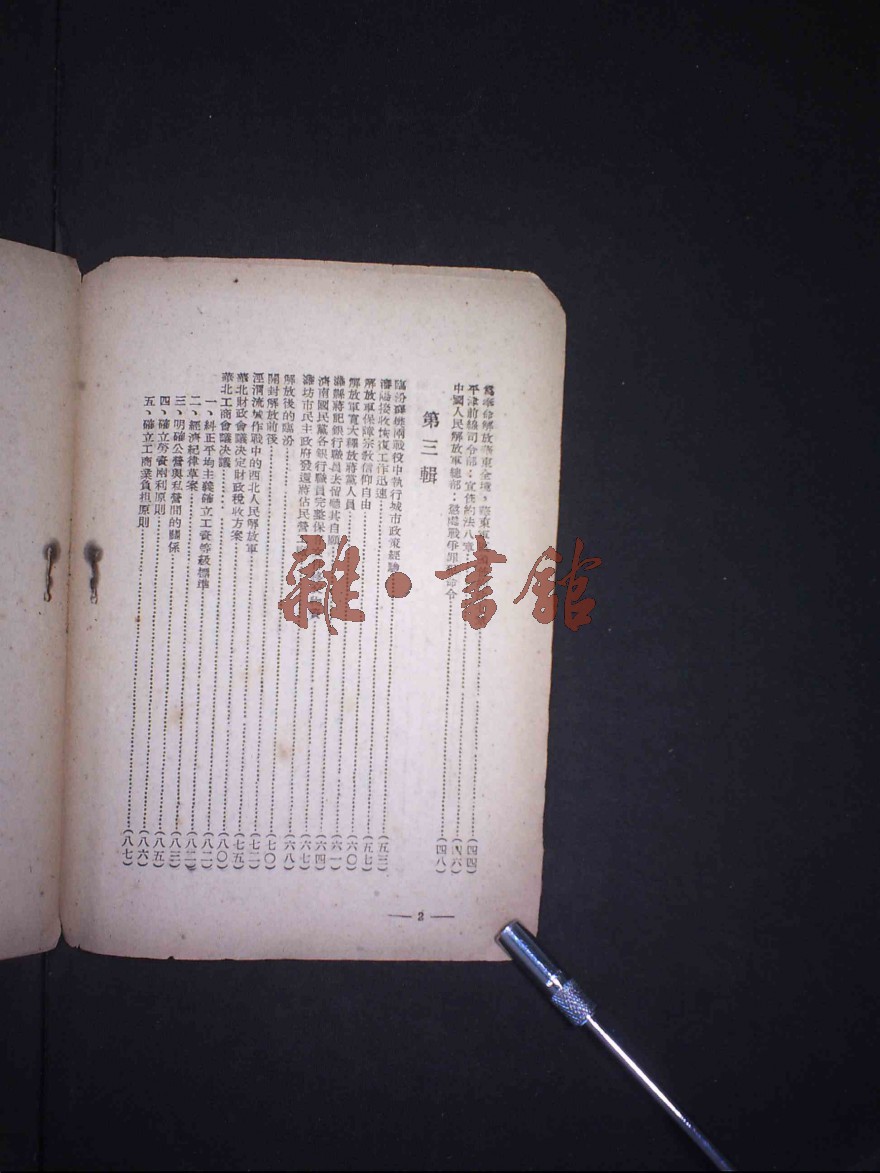 爲革命解放華東全境，華東軍
平津前線司令部：宣佈約法八章……(四四)
中國人民解放軍總部：懲處戰爭罪犯命令……(四六)
(四八)
第三輯
臨汾襄樊南戰役中執行城市政策經驗……(五三)
瀋陽接收恢復工作迅速……(五七)
解放軍保障宗敎信仰自由……(六〇)
解放軍寬大釋放蔣黨人員……(六一)
濰縣蔣記銀行職員去留聽其自願……(六四)
濟南國民黨各銀行職員完整保
濰坊市民主政府發還蔣佔民營……(六七)
解放後的臨汾……(六八)
開封解放前後……(七〇)
涇渭流域作戰中的西北人民解放軍……(七二)
華北財政會議決定財政稅收方案……(七五)
華北工商會議決議……(八〇)
一、糾正平均主義確立工資等級標準……(八二)
二、經濟紀律草案……(八二)
三、明確公營與私營間的關係……(八三)
四、確立勞資兩利原則……(八五)
五、確立工商業負担原則……(八六)
(八七)
— 2 —
雜·書館